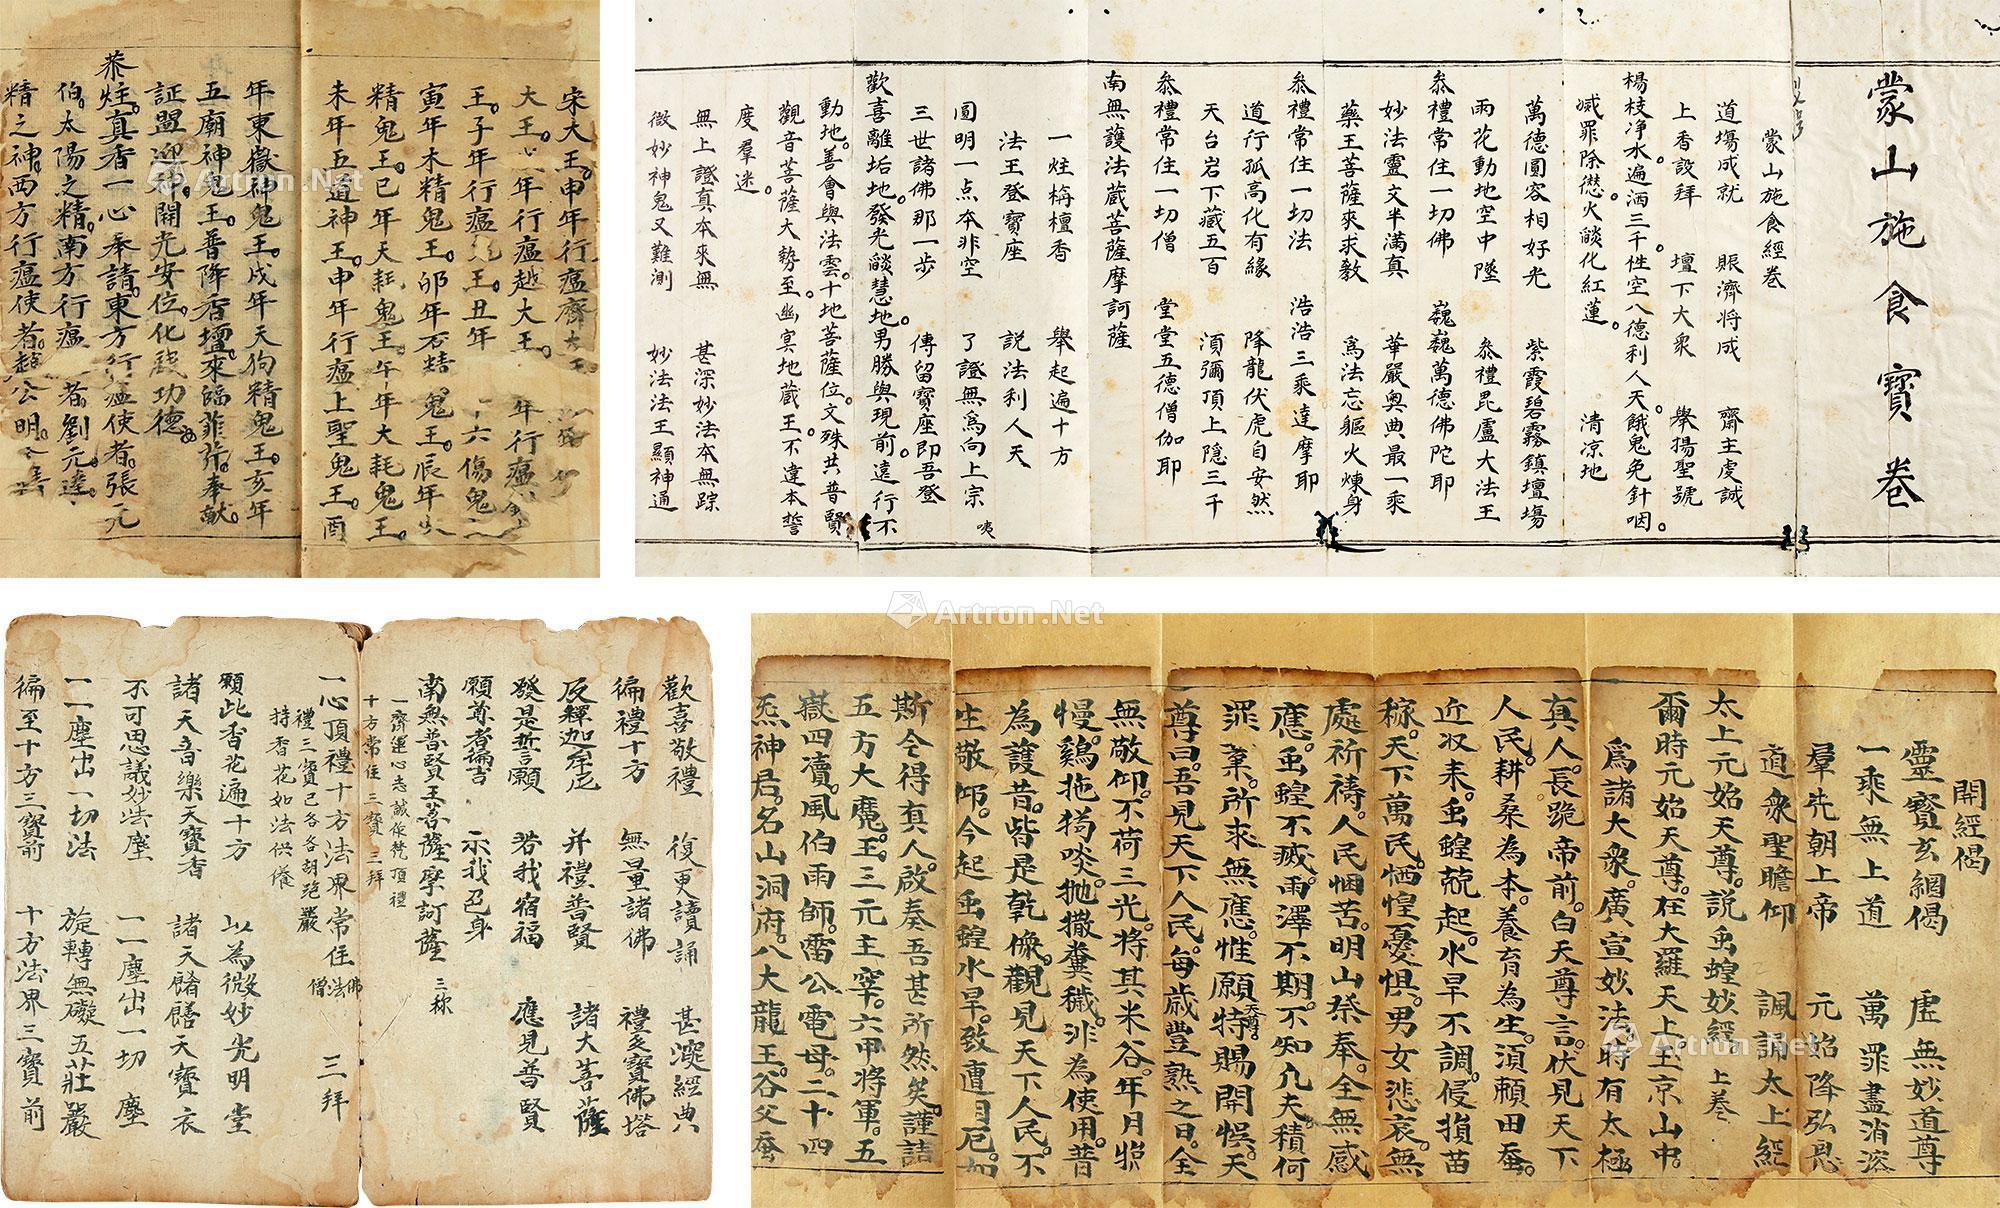 宋大王。申年行瘟齊大王
大王。年行瘟越大王。年行瘟
王。子年行瘟王。丑年六傷鬼
寅年木精鬼王。卯年石精鬼王。辰年
精鬼王。巳年天耗鬼王。午年大耗鬼王。
未年五道神王。申年行瘟上聖鬼王。酉
年東嶽神鬼王。戌年天狗精鬼王。亥年
五廟神鬼王。普降香壇。來臨菲筵。奉獻。
証盟迎神。開光安位。化錢功德。
恭炷真香一心奉請。東方行瘟使者。張元
伯。太陽之精。南方行瘟者。劉元達。
精之神。西方行瘟使者。趙公明。
蒙山施食寶卷
蒙山施食經卷
道場成就 賑濟將成 齋主虔誠
上香設拜 壇下大衆 舉揚聖號
楊枝净水。遍洒三千。性空八德利人天。餓鬼免針咽。
滅罪除愆。火燄化紅蓮。 清凉地
萬德圓容相好光 紫霞碧霧鎮壇場
雨花動地空中墜 叅禮毘盧大法王
叅禮常住一切佛 巍巍萬德佛陀耶
妙法靈文半滿真 華嚴奥典最一乘
藥王菩薩來求教 爲法忘軀火煉身
叅禮常住一切法 浩浩三乘達摩耶
道行孤高化有緣 降龍伏虎自安然
天台岩下藏五百 湏彌頂上隱三千
叅禮常住一切僧 堂堂五德僧伽耶
南無護法藏菩薩摩訶薩
一炷栴檀香 舉起遍十方
法王登寶座 説法利人天
圓明一点本非空 了證無爲向上宗 咦
三世諸佛那一步 傳留寶座即吾登
歡喜離垢地。發光燄慧地。男勝與現前。遠行不
動地。善會與法雲。十地菩薩位。文殊共普賢
觀音菩薩大勢至。幽冥地藏王。不違本誓
度羣迷。
無上證真本來無 甚深妙法本無踪
微妙神鬼又難測 妙法法王顯神通
歡喜敬禮 復更讀誦 甚深經典
徧禮十方 無量諸佛 禮多寶佛塔
及釋迦牟尼 并禮普賢 諸大菩薩
發是誓言願 若我宿福 應見普賢
願尊者徧吉 示我色身
南無普賢王菩薩摩訶薩 三称
一齊運心志誠作梵頂禮
十方常住三寶 三拜
一心頂禮十方法界常住佛法僧 三拜
禮三寶已各各胡跪嚴
持香花如法供養
願此香花遍十方 以為微妙光明堂
諸天音樂天寶香 諸天餚饍天寶衣
不可思議妙法塵 一一塵出一切塵
一一塵出一切法 旋轉無礙五莊嚴
徧至十方三寶前 十方法界三寶前
開經偈
靈寶玄網偈 虛無妙道尊
一乘無上道 萬罪盡消溶
羣先朝上帝 元始降弘恩
道衆聖瞻仰 諷誦太上經
太上元始天尊。説虫蝗妙經。上卷
爾時元始天尊。在大羅天上。玉京山中。
爲諸大衆。廣宣妙法。時有太極
真人。長跪帝前。白天尊言。伏見天下
人民。耕桑為本。養育為生。湏賴田蚕。
近収未。虫蝗兢起。水旱不調。侵損苗
稼。天下萬民。恓惶憂惧。男女悲哀。無
處祈禱。人民悃苦。明山祭奉。全無感
應。虫蝗不滅。雨澤不期。不知凢夫。積何
罪業。所求無應。惟願天尊特賜開悞。天
尊曰。吾見天下人民。每歲豐熟之日。全
無敬仰。不荷三光。將其米谷。年月懒
慢。鷄拖猪啖。抛撒糞穢。非為使用。昔
為護昔。皆是乾像。觀見天下人民。不
生敬仰。今起虫蝗水旱。致遭目厄。如
斯今得真人。啟奏吾甚所然矣。謹詰
五方大魔。王。三元主宰。六甲將軍。五
嶽四瀆。風伯雨師。雷公電母。二十四
炁神君。名山洞府。八大龍王。谷父蚕